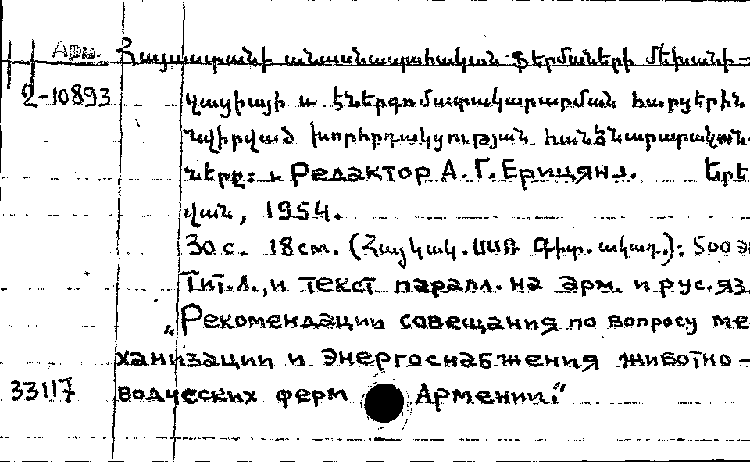 Арм. Հայաստանի անասնապահական ֆերմաների մեխանի-
2-10893 զացիայի և էներգոմատակարարման հարցերին
նվիրված խորհրդակցության հանձնարարական-
ները: Редактор А. Г. Ерицян. Երե
վան, 1954.
30 с. 18 см. (Հայկակ. ՍՍՌ Գիտ. ակադ.): 500 э
Тит. л., и текст паралл. на арм. и рус. яз.
„Рекомендации совещания по вопросу ме
ханизации и энергоснабжения животно-
33117 водческих ферм Армении."